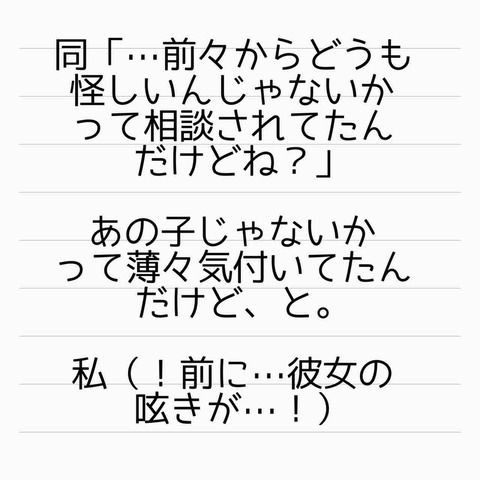 同「…前々からどうも
怪しいんじゃないか
って相談されてたん
だけどね？」
あの子じゃないか
って薄々気付いてたん
だけど、と。
私（！前に…彼女の
呟きが…！）